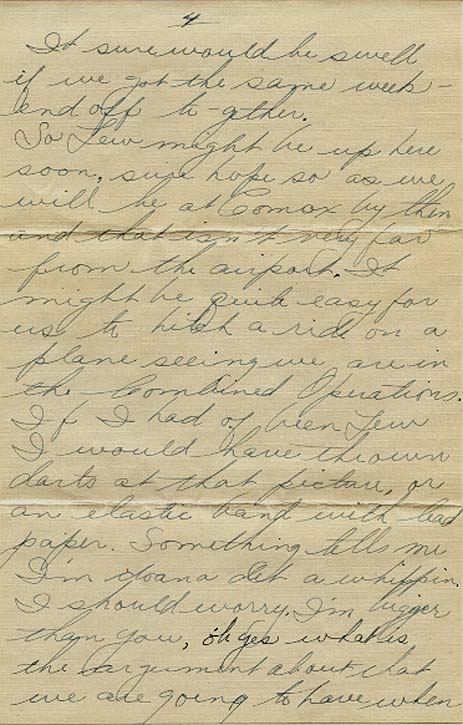 4
It sure would be swell
if we got the same week-
end off to-gther.
So Lew might be up here
soon, sure hope so as we
will be at Comox by then
and that isn't very far
from the airport. It
might be quite easy for
us to hitch a ride on a
plane seeing we are in
the Combined Operations.
If I had of been Lew
I would have thrown
darts at that picture, or
an elastic band with lead
paper. Something tells me
I'm doana det a whippin.
I should worry, I'm bigger
than you, oh yes what is
the argument about that
we are going to have when